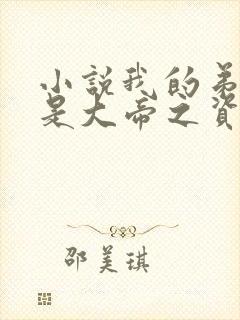 小說我的弟
是大帝之資
邵美琪